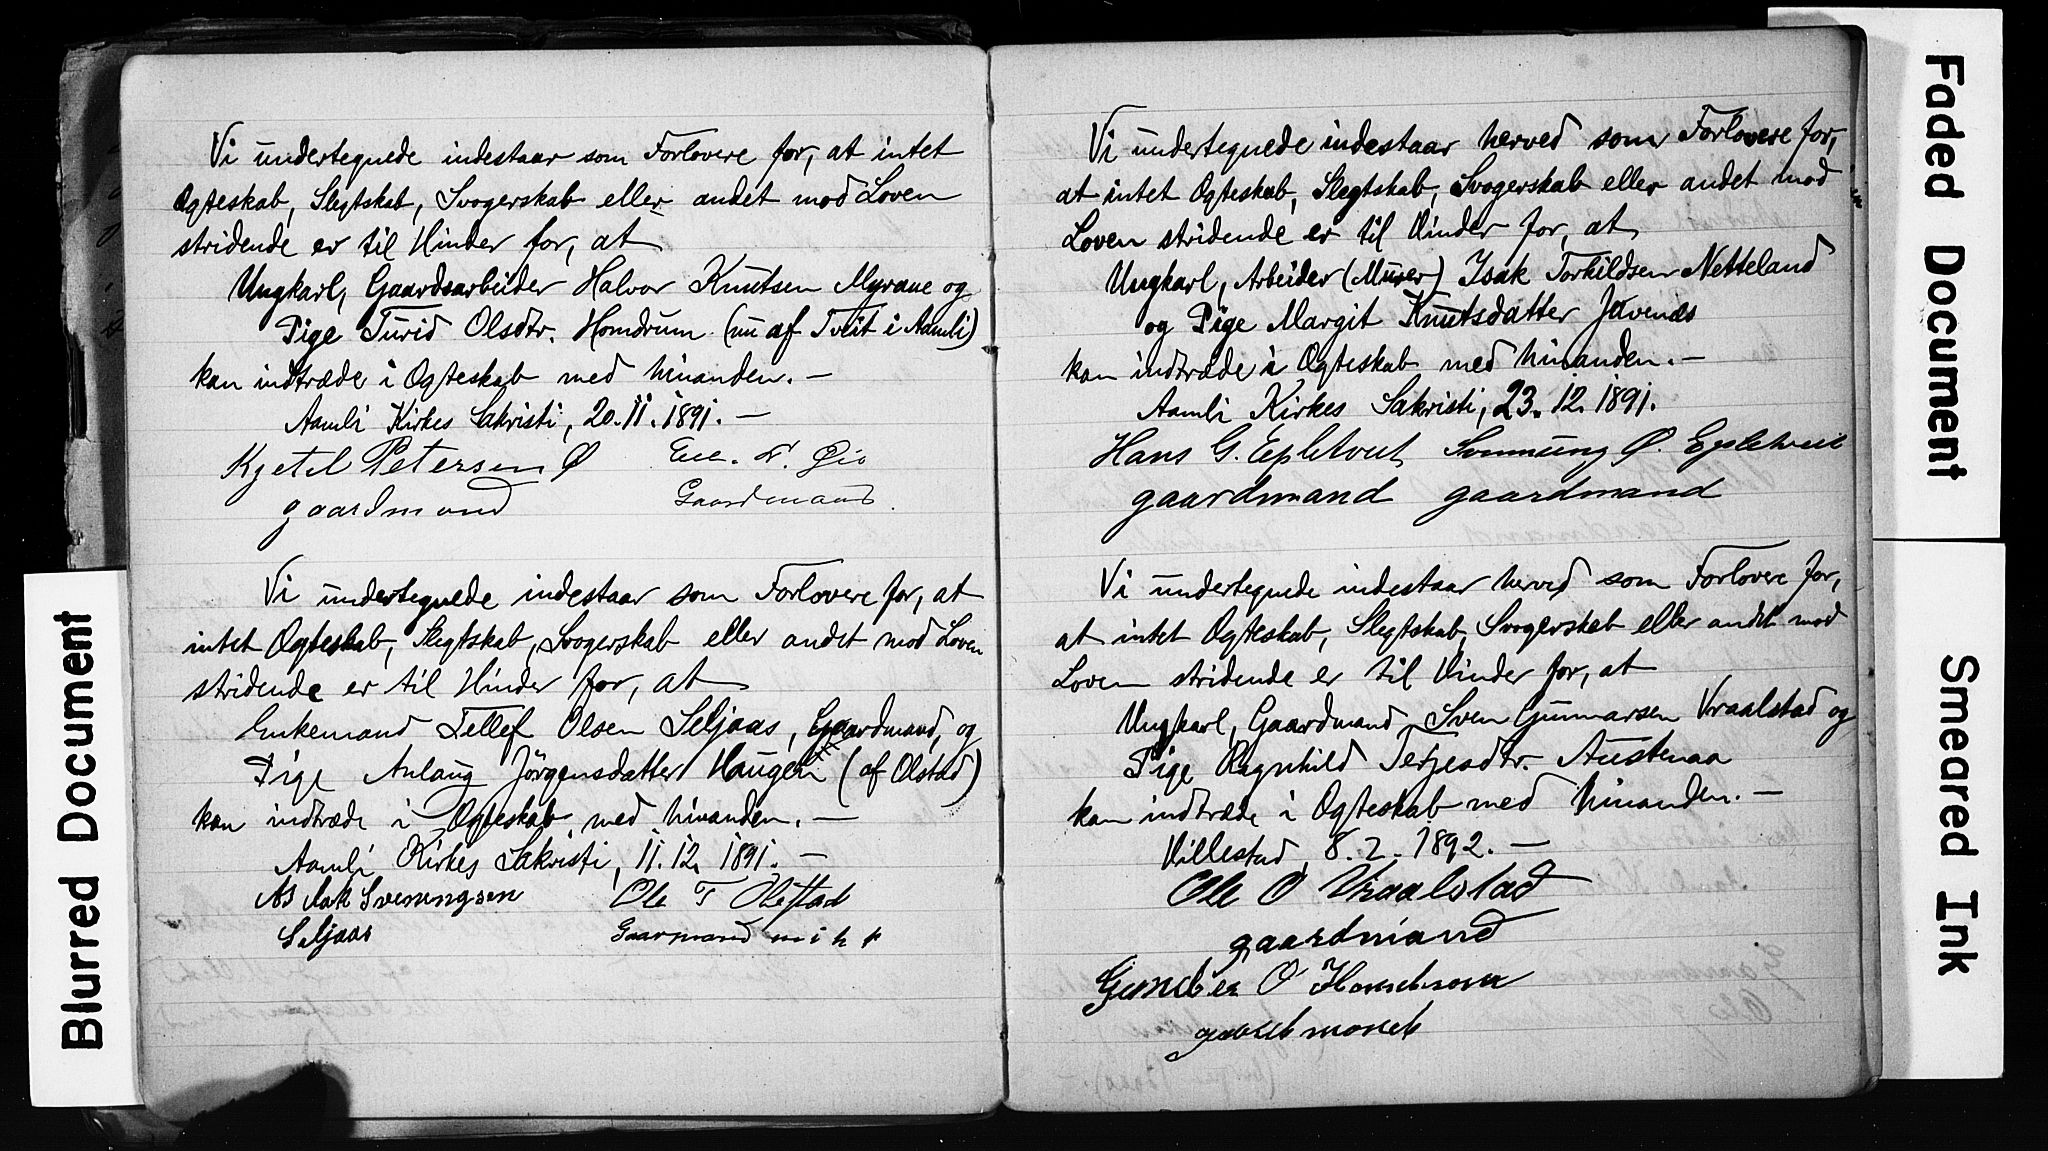 Vi undertegnede indestaar som Forlovere for, at intet
Ægteskab, Slegtskab, Svogerskab eller andet mod Loven
stridende er til Hinder for, at
Ungkarl, Gaardsarbeider Halvor Knutsen Myrane og
Pige Turid Olsdtr. Homdrum (nu af Tveit i Aamli)
kan indtræde i Ægteskab med hinanden. —
Aamli Kirkes Sakristi, 20.11.1891. —
Kjetil Petersen Ø
gaardmand
Gaardmand
Vi undertegnede indestaar som Forlovere for, at
intet Ægteskab, Slegtskab, Svogerskab eller andet mod Loven
stridende er til Hinder for, at
Enkemand Tellef Olsen Seljaas, Gaardmand, og
Pige Anlaug Jörgensdatter Haugen (af Olstad)
kan indtræde i Ægteskab med hinanden. —
Aamli Kirkes Sakristi, 11.12.1891. —
Sveningsen Ole T
Seljaas Gaarmand
Vi undertegnede indestaar herved som Forlovere for,
at intet Ægteskab, Slegtskab, Svogerskab eller andet mod
Loven stridende er til Hinder for, at
Ungkarl, Arbeider (Murer) Isak Torkildsen Netteland
og Pige Margit Knutsdatter Jøvenæs
kan indtræde i Ægteskab med hinanden. —
Aamli Kirkes Sakristi, 23.12.1891.
Hans G. Epletveit Ø. Epletveit
gaardmand gaardmand
Vi undertegnede indestaar herved som Forlovere for,
at intet Ægteskab, Slegtskab, Svogerskab eller andet mod
Loven stridende er til Hinder for, at
Ungkarl, Gaardmand Sven Gunnarsen Vraalstad og
Pige Ragnhild Terjesdtr. Austenaa
kan indtræde i Ægteskab med hinanden. —
Hillestad, 8.2.1892. —
Ole O Vraalstad
gaardmand
O
Blurred Document
Faded Document
Smeared Ink